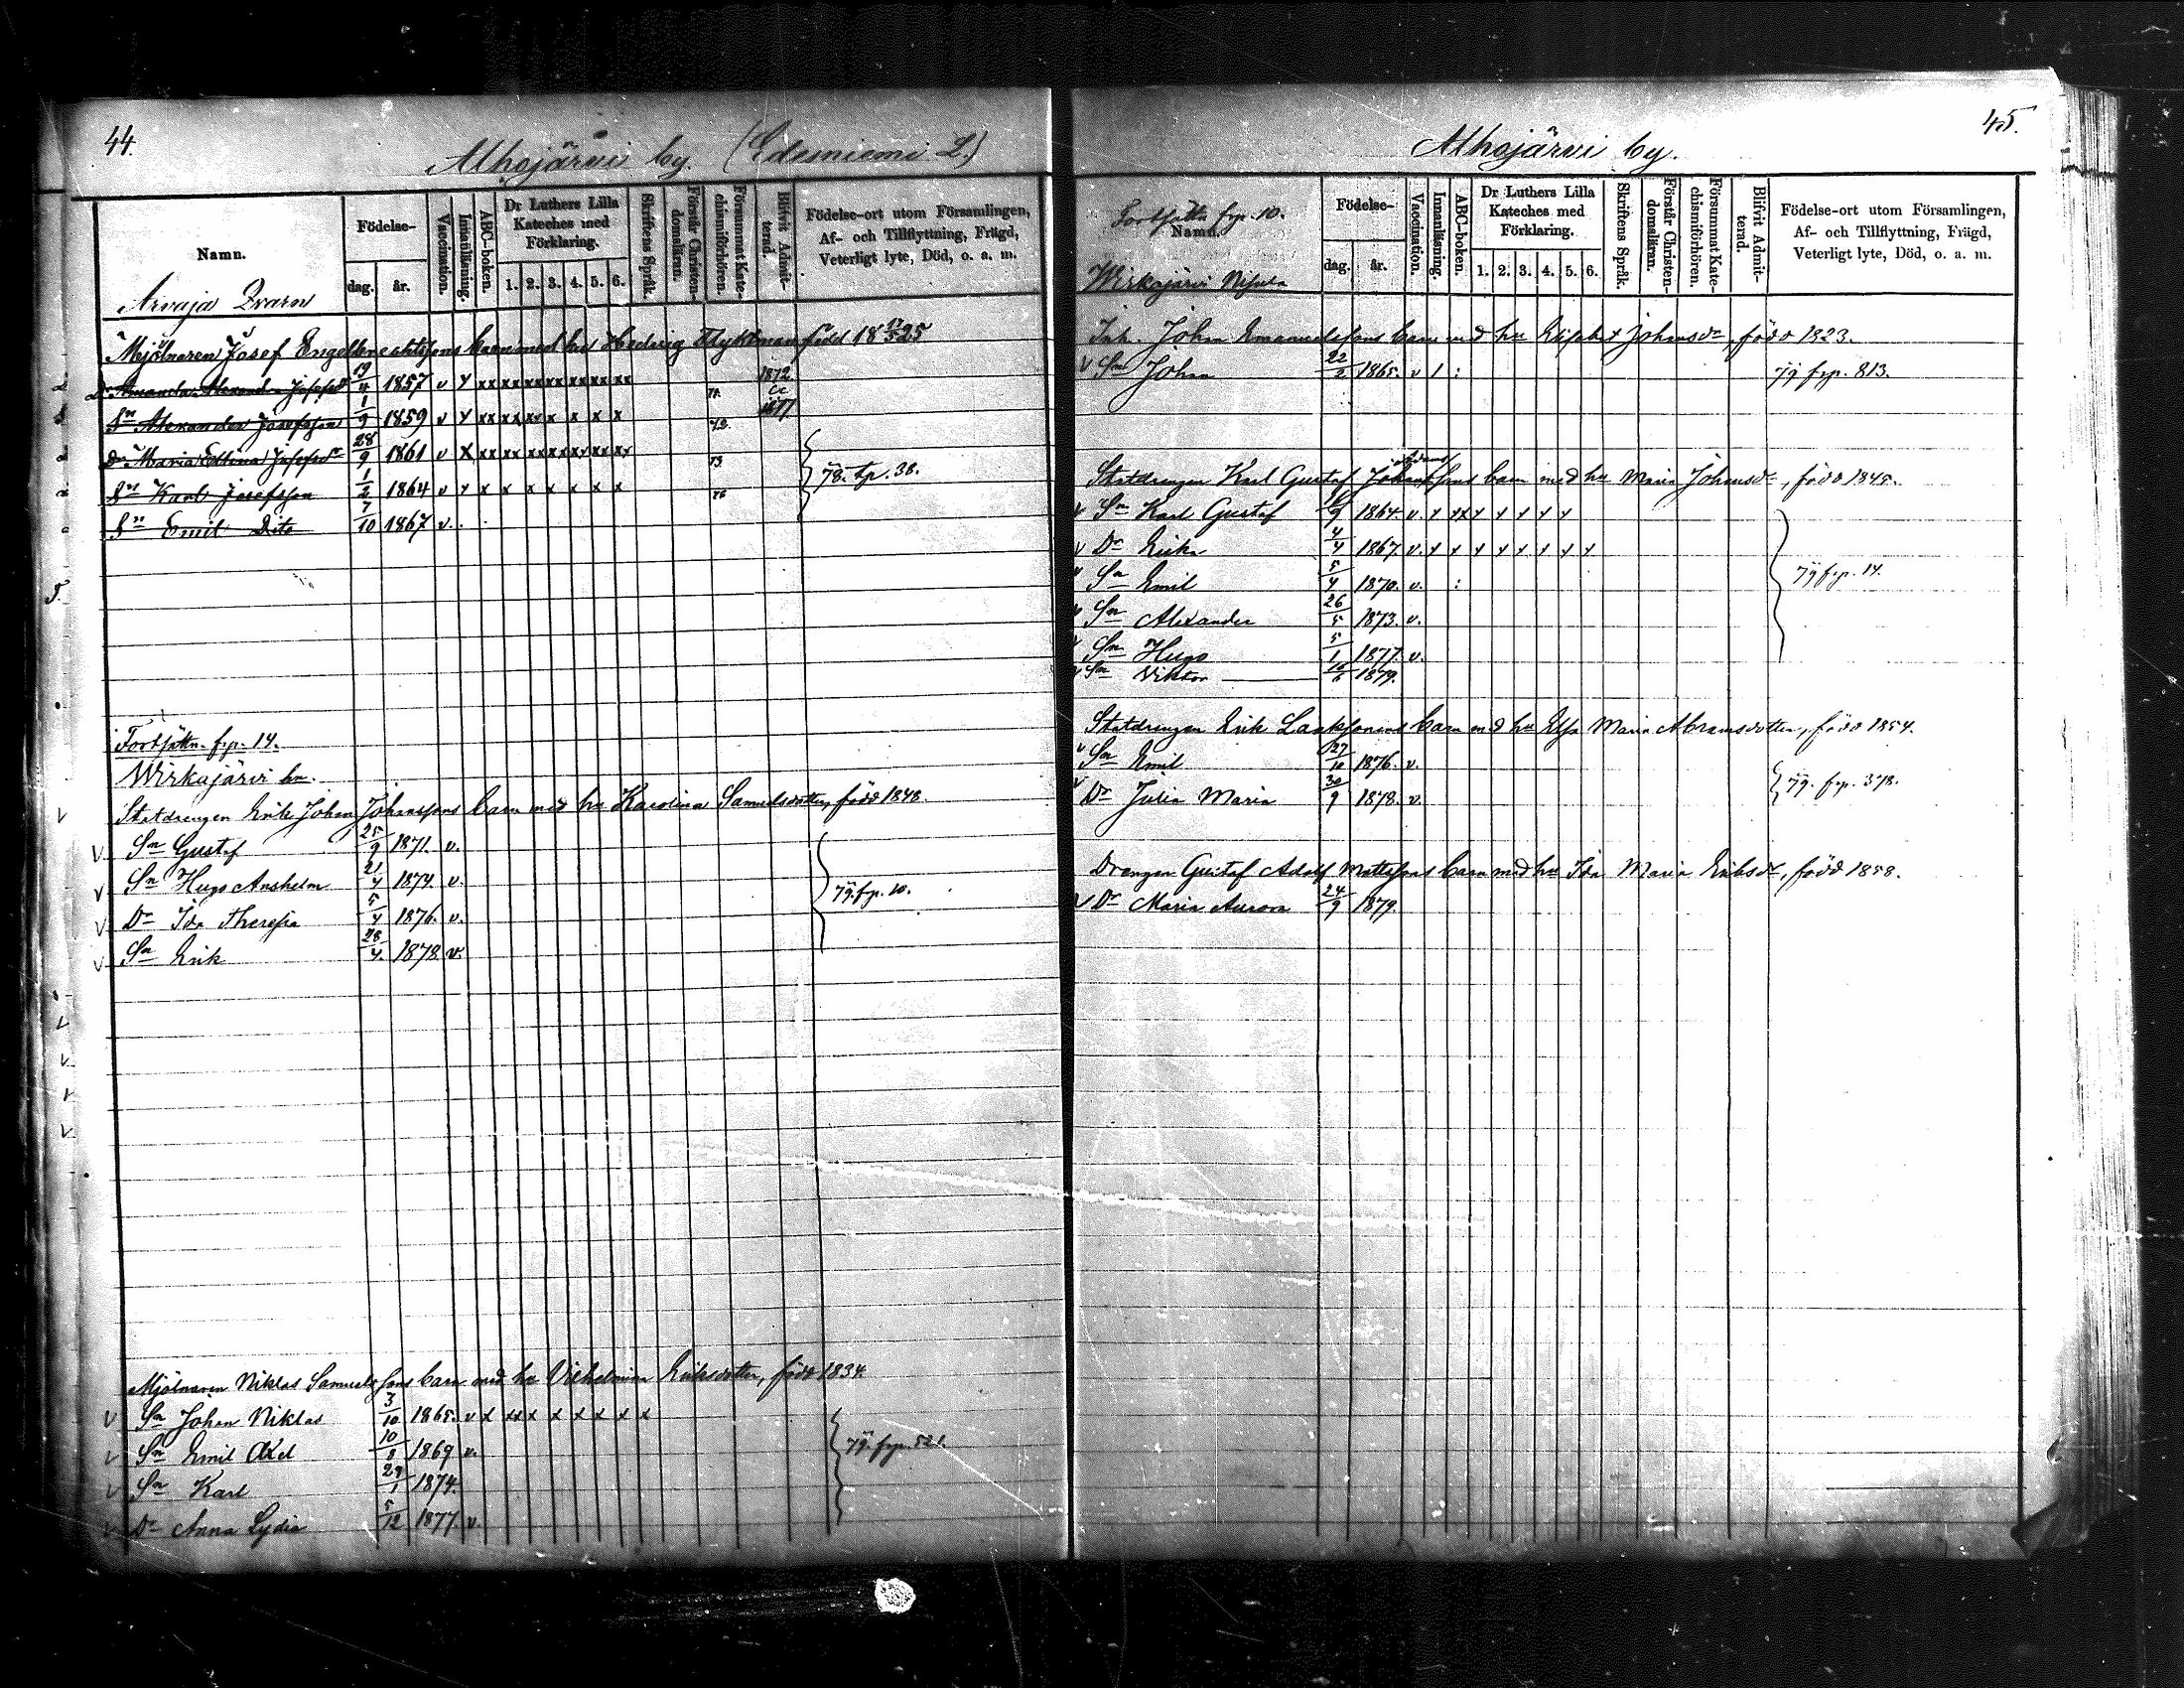 44.
Alhojärvi by. (Edesniemi L.)
Namn.
Födelse-
dag.
år.
Vaccination.
Innanläsning.
ABC-boken.
Dr Luthers Lilla Kateches med Förklaring.
1. 2. 3. 4. 5. 6.
Skriftens Språk.
Förstår Christen-domsläran.
Försummat Kate-chismiförhören.
Blifvit Admit-terad.
Födelse-ort utom Församlingen,
Af- och Tillflyttning, Frägd,
Veterligt lyte, Död, o. a. m.
Arvaja Qvarn
Mjölnaren Josef Engelbrechtsons barn med hu Hedvig Flyktman född 18 25
Dr Amanda Alexandra Josefsdr 19/4 1857 v Y xx xx xx xx xx xx xx 71. 1872
Sn Alexander Josefsson 1/9 1859 v Y xx xx xx x x x x 72. 1877
Dr Maria Edlina Josefsdr 28/9 1861 v X xx xx xx xx xx xx xx 73
Sn Karl Josefsson 1/2 1864 v Y x x x x x x x 76 78. tp. 38.
Sn Emil Dito 7/10 1867 v.
Fortsättn. frp. 14.
Wirkajärvi hn.
Statdrengen Erik Johan Johanssons barn med hu Karolina Samuelsdotter, född 1848.
v Sn Gustaf 25/9 1871. v.
v Sn Hugo Anshelm 21/4 1874. v. 79. frp. 10.
v Dr Ida Theresia 5/4 1876. v.
v Sn Erik 28/4. 1878 v.
Mjölnaren Niklas Samuelssons barn med hu Vilhelmina Eriksdotter, född 1834.
v Sn Johan Niklas 3/10 1865. v x xx x x x x x x
v Sn Emil Axel 10/8 1869 v. 79. frp. 521.
v Sn Karl 29/1 1874.
v Dr Anna Lydia 5/12 1877. v.
45.
Alhojärvi by.
Fortsättn frp. 10.
Namn.
Födelse-
dag.
år.
Vaccination.
Innanläsning.
ABC-boken.
Dr Luthers Lilla Kateches med Förklaring.
1. 2. 3. 4. 5. 6.
Skriftens Språk.
Förstår Christen-domsläran.
Försummat Kate-chismiförhören.
Blifvit Admit-terad.
Födelse-ort utom Församlingen,
Af- och Tillflyttning, Frägd,
Veterligt lyte, Död, o. a. m.
Wirkajärvi Nisula
Inh. Johan Emanuelssons barn med hu Elisabet Johansdr, född 1823.
v Sn Johan 22/2 1865. v 1 : 79 frp. 813.
Statdrengen Karl Gustaf Johanssons barn med hu Maria Johansdr, född 1845.
v Sn Karl Gustaf 1864. v. x xx x x x x x
v Dr Erika 4/4 1867. v. x x x x x x x x
v Sn Emil 5/4 1870. v. : 79 frp. 14.
v Sn Alexander 26/5 1873. v.
v Sn Hugo 5/1 1877. v.
v Sn Viktor 1879.
Statdrengen Erik Laaksonens barn med hu Elsa Maria Abramsdotter, född 1854.
v Sn Emil 27/10 1876. v.
v Dr Julia Maria 30/9 1878. v. 79. frp. 378.
Drengen Gustaf Adolf Mattssons barn med hu Ida Maria Eriksdr, född 1858.
v Dr Maria Aurora 24/9 1879.